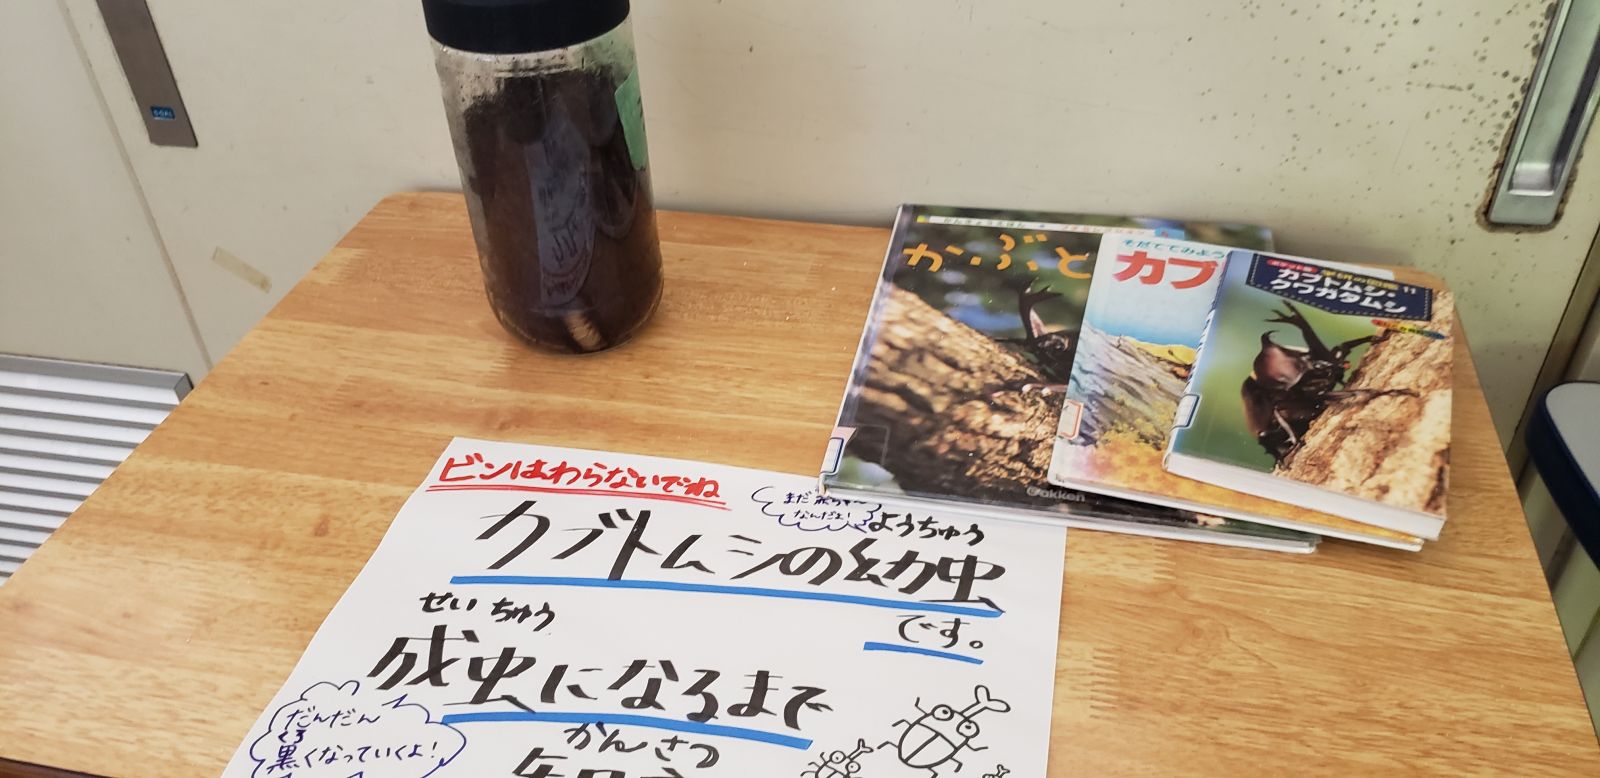 GOAL
かんきょうえほん
かぶと
そだててみよう
カブ
ポケット版 学研の図鑑 11
カブトムシ・
クワガタムシ
Gakken
ビンはわらないでね
まだ赤ちゃん
なんだよ!
ようちゅう
カブトムシの幼虫
です。
せいちゅう
成虫になるまで
だんだん
くろ
黒くなっていくよ!
かんさつ